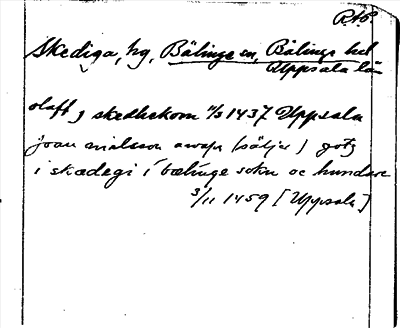 R.t.P.
Skediga, hg, Bälinge sn, Bälinge hd
Uppsala län
olaff j skedhekom 11/3 1437 Uppsala
joan nielsson (säljer) gotz
i skædegi i bælinge sokn oc hundare
3/11 1459 [Uppsala]